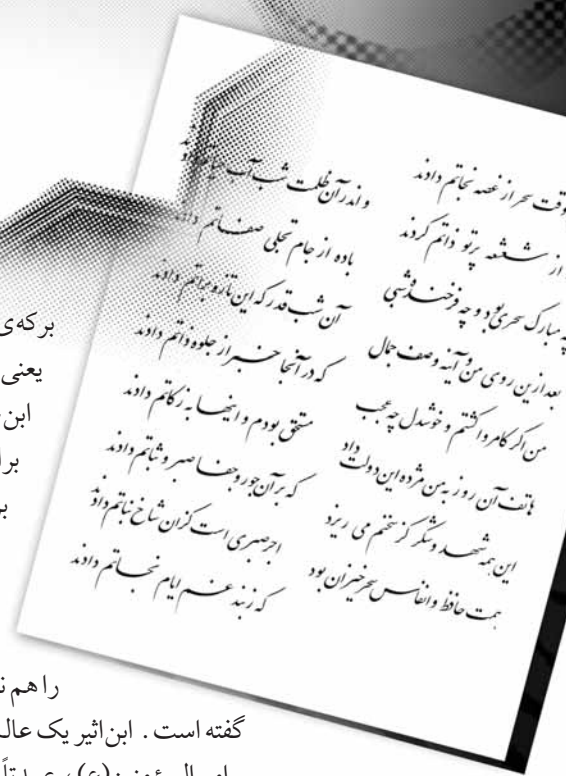 وقت سحر از غصه نجاتم دادند
واندر آن ظلمت شب آب حیاتم دادند
از شعشعه پرتو ذاتم کردند
باده از جام تجلی صفاتم دادند
چه مبارک سحری بود و چه فرخنده شبی
آن شب قدر که این تازه براتم دادند
بعد ازین روی من و آینه وصف جمال
که در آنجا خبر از جلوه ذاتم دادند
من اگر کامروا گشتم و خوشدل چه عجب
مستحق بودم و اینها به زکاتم دادند
هاتف آن روز به من مژده این دولت داد
که بر آن جور و جفا صبر و ثباتم دادند
این همه شهد و شکر کز سخنم می ریزد
اجر صبری است کزان شاخ نباتم دادند
همت حافظ و انفاس سحر خیزان بود
که ز بند غم ایام نجاتم دادند
برکه‌ی
یعنی
ابن
برا
بر
را هم
گفته است. ابن‌اثیر یک